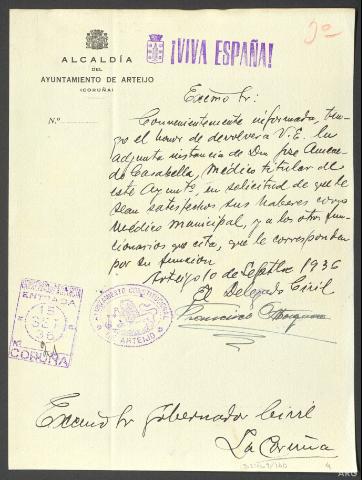 ¡VIVA ESPAÑA!
ALCALDÍA
DEL
AYUNTAMIENTO DE ARTEIJO
(CORUÑA)
N.º
Excmo Sr:
Convenientemente informada, ten-
go el honor de devolver a V.E. la
adjunta instancia de Don
de Carabella, Médico titular de
este Aymtº, en solicitud de que le
sean satisfechos sus haberes como
Médico municipal, y a los otros fun-
cionarios que cita, que le correspondan
por su función
Arteijo 10 de Septbre 1936
El Delegado Civil
Francisco
ENTRADA
15
SET
36
CORUÑA
AYUNTAMIENTO CONSTITUCIONAL
DE ARTEIJO
Excmo Sr Gobernador Civil
La Coruña
ARG